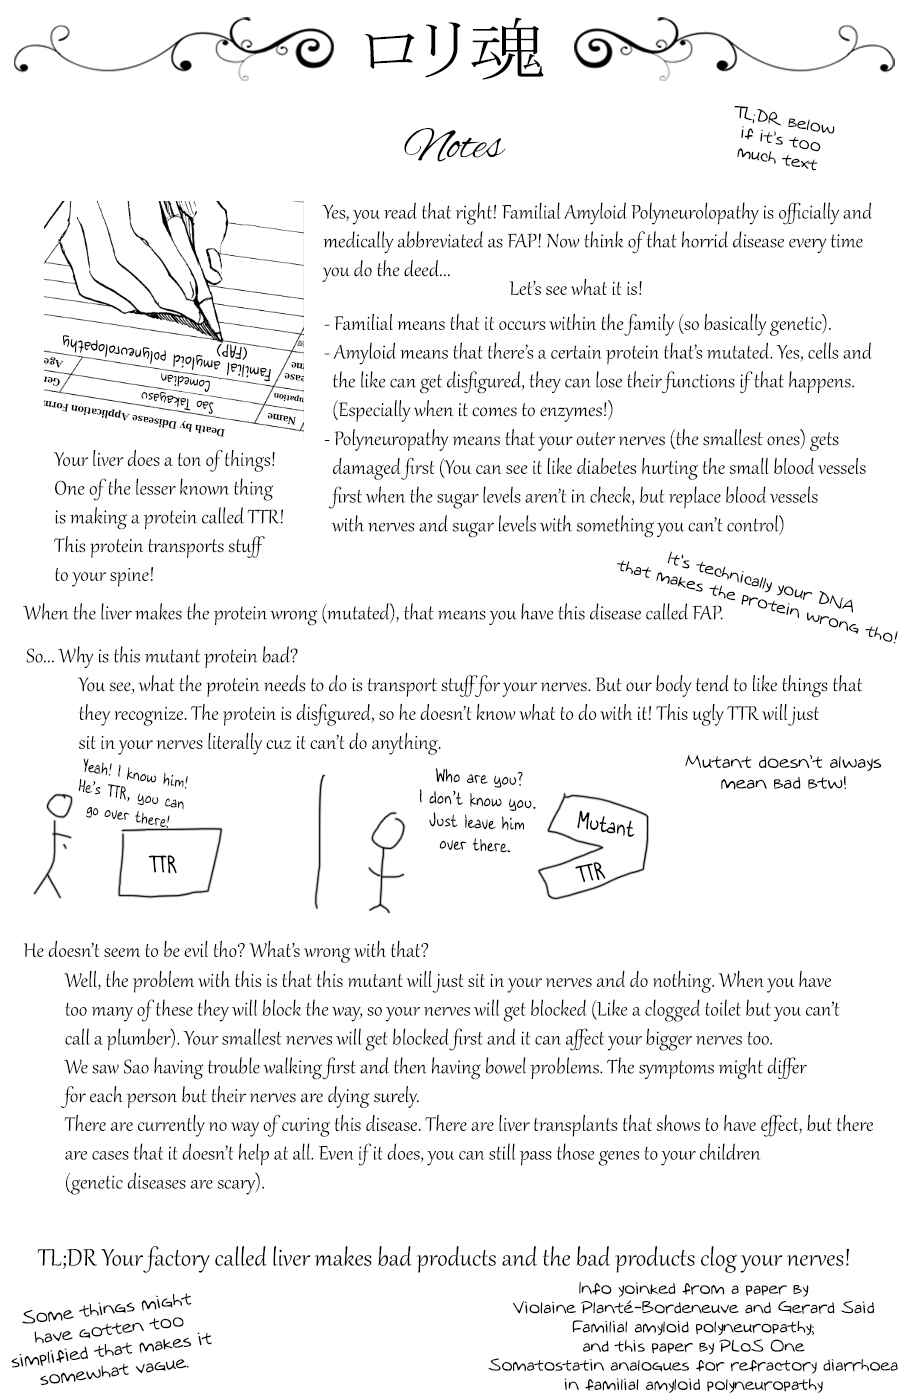 ロリ魂
Notes
TL;DR Below
if it's too
much text
Yes, you read that right! Familial Amyloid Polyneurolopathy is officially and
medically abbreviated as FAP! Now think of that horrid disease every time
you do the deed...
Let's see what it is!
- Familial means that it occurs within the family (so basically genetic).
- Amyloid means that there's a certain protein that's mutated. Yes, cells and
the like can get disfigured, they can lose their functions if that happens.
(Especially when it comes to enzymes!)
- Polyneuropathy means that your outer nerves (the smallest ones) gets
damaged first (You can see it like diabetes hurting the small blood vessels
first when the sugar levels aren't in check, but replace blood vessels
with nerves and sugar levels with something you can't control)
Death by Ddisease Application Form
Name
Sao Takayasu
Comedian
Age
Familial amyloid polyneurolopathy
(FAP)
Your liver does a ton of things!
One of the lesser known thing
is making a protein called TTR!
This protein transports stuff
to your spine!
It's technically your DNA
that makes the protein wrong tho!
When the liver makes the protein wrong (mutated), that means you have this disease called FAP.
So... Why is this mutant protein bad?
You see, what the protein needs to do is transport stuff for your nerves. But our body tend to like things that
they recognize. The protein is disfigured, so he doesn't know what to do with it! This ugly TTR will just
sit in your nerves literally cuz it can't do anything.
Mutant doesn't always
mean bad btw!
Yeah! I know him!
He's TTR, you can
go over there!
TTR
Who are you?
I don't know you.
Just leave him
over there.
Mutant
TTR
He doesn't seem to be evil tho? What's wrong with that?
Well, the problem with this is that this mutant will just sit in your nerves and do nothing. When you have
too many of these they will block the way, so your nerves will get blocked (Like a clogged toilet but you can't
call a plumber). Your smallest nerves will get blocked first and it can affect your bigger nerves too.
We saw Sao having trouble walking first and then having bowel problems. The symptoms might differ
for each person but their nerves are dying surely.
There are currently no way of curing this disease. There are liver transplants that shows to have effect, but there
are cases that it doesn't help at all. Even if it does, you can still pass those genes to your children
(genetic diseases are scary).
TL;DR Your factory called liver makes bad products and the bad products clog your nerves!
Some things might
have gotten too
simplified that makes it
somewhat vague.
Info yoinked from a paper by
Violaine Planté-Bordeneuve and Gerard Said
Familial amyloid polyneuropathy;
and this paper by PLoS One
Somatostatin analogues for refractory diarrhoea
in familial amyloid polyneuropathy